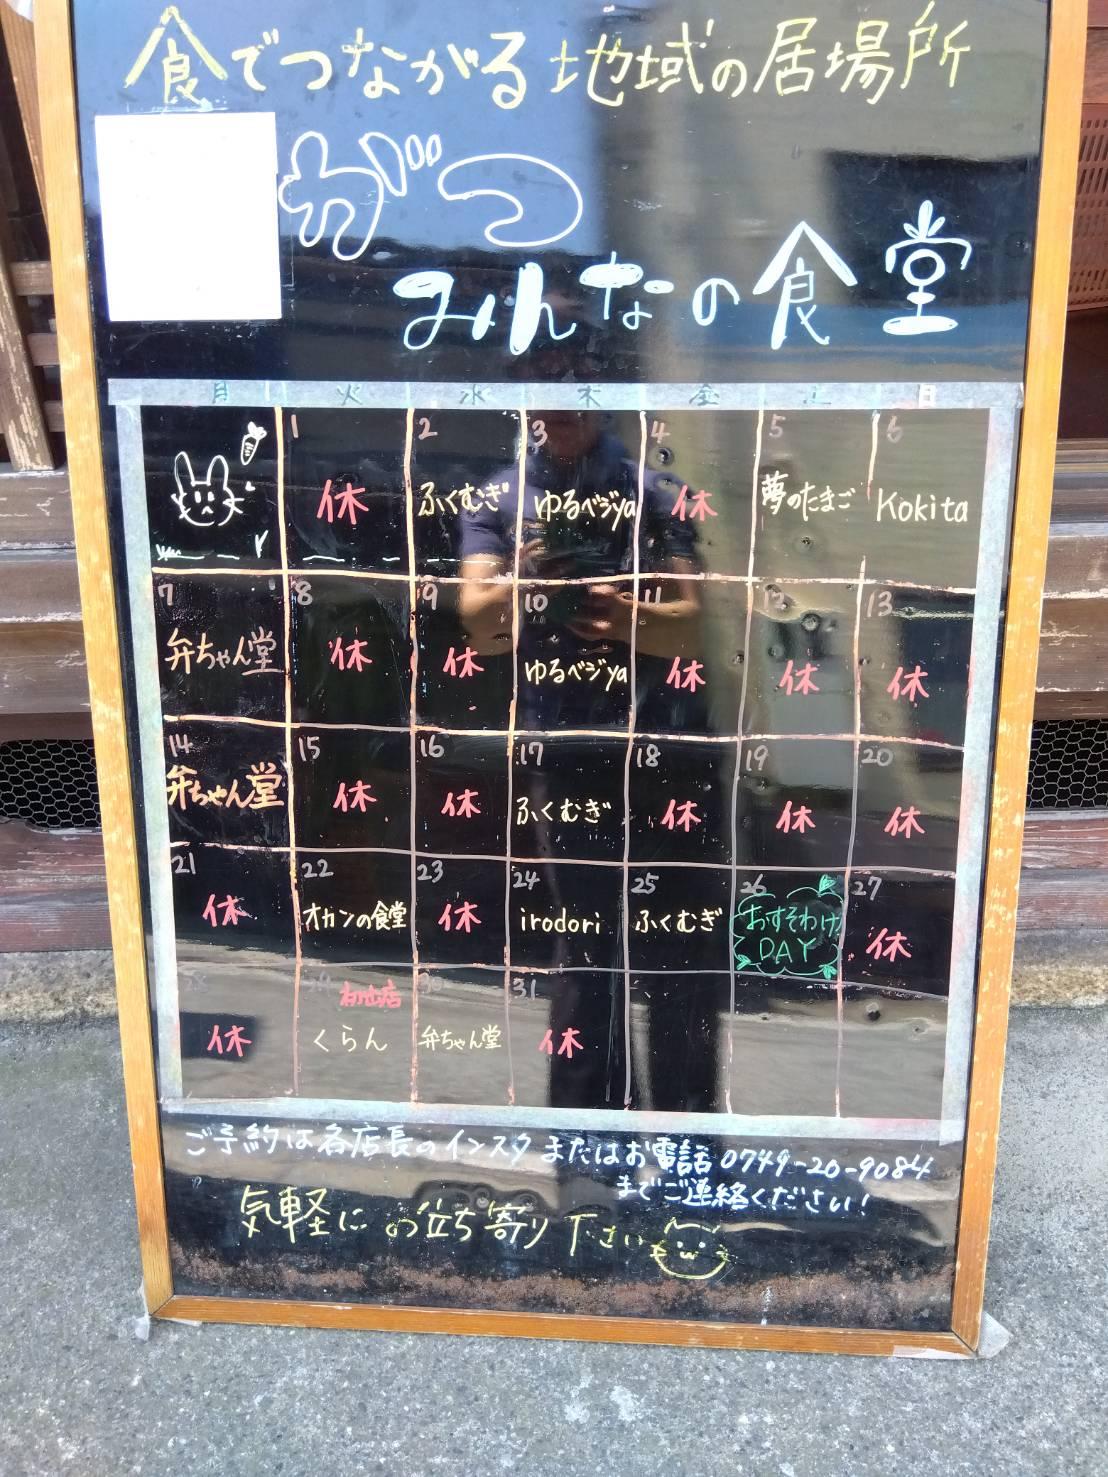 食でつながる地域の居場所
がつ
みんなの食堂
月 火 水 木 金 土 日
1 2 3 4 5 6
休 ふくむぎ ゆるベジya 休 夢のたまご Kokita
7 8 9 10 11 12 13
弁ちゃん堂 休 休 ゆるベジya 休 休 休
14 15 16 17 18 19 20
弁ちゃん堂 休 休 ふくむぎ 休 休 休
21 22 23 24 25 26 27
休 オカンの食堂 休 irodori ふくむぎ おすそわけ 休
DAY
28 29 初出店 30 31
休 くらん 弁ちゃん堂 休
ご予約は各店長のインスタまたはお電話0749-20-9084
までご連絡ください!
気軽にお立ち寄り下さい